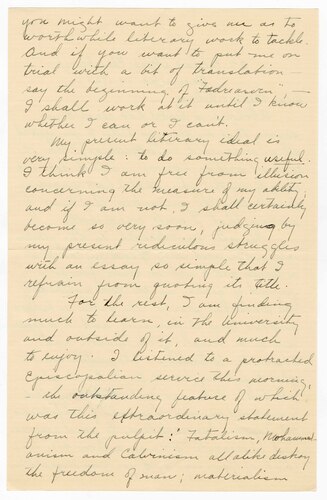 you might want to give me as to
worth while literary work to tackle.
And if you want to put me on
trial with a bit of translation —
say the beginning of "Fadrearvin", —
I shall work at it until I know
whether I can or I can't.
My present literary ideal is
very simple: to do something useful.
I think I am free from illusion
concerning the measure of my ability,
and if I am not, I shall certainly
become so very soon, judging by
my present rediculous struggles
with an essay so simple that I
refrain from quoting its title.
For the rest, I am finding
much to learn, in the University
and outside of it, and much
to enjoy. I listened to a protracted
Episcopalian service this morning,
- the outstanding feature of which
was this extraordinary statement
from the pulpit: "Fatalism, Mohammed-
anism and Calvinism all alike destroy
the freedom of man; materialism